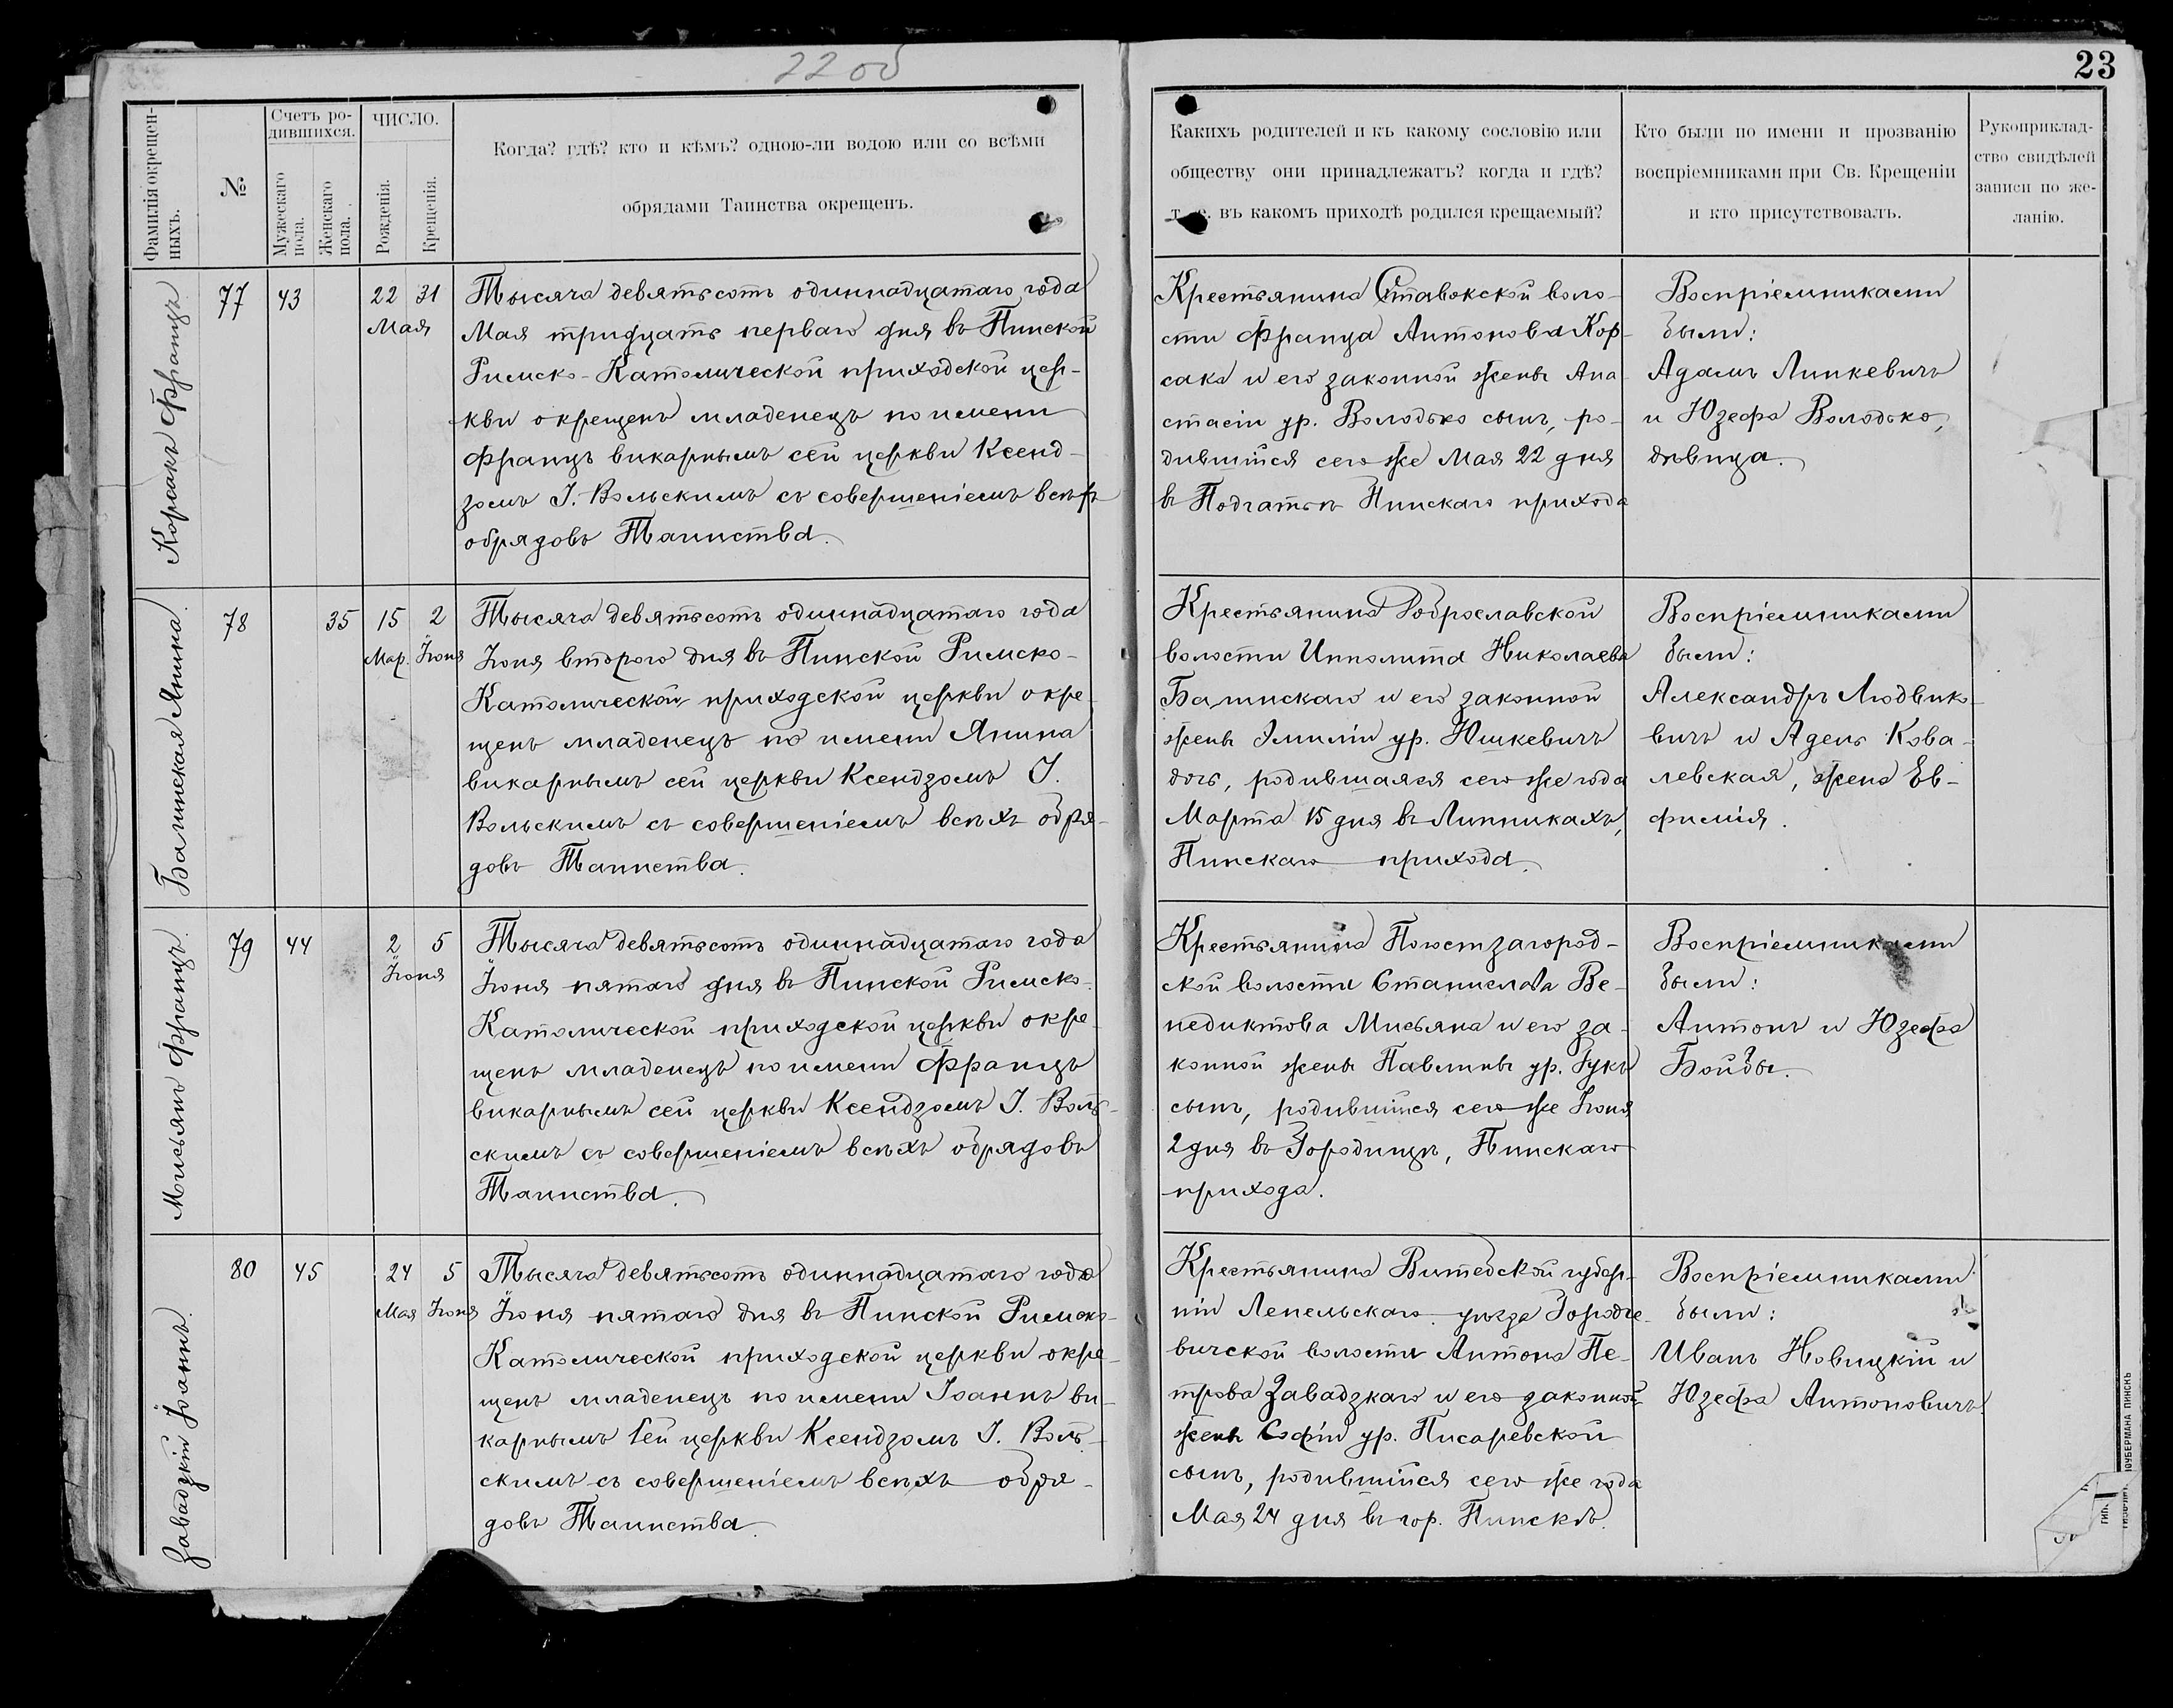 22 об
23
Фамилія окрещен-
ныхъ.
№
Счетъ ро-
дившихся.
Мужескаго
пола.
Женскаго
пола.
ЧИСЛО.
Рожденія.
Крещенія.
Когда? гдѣ? кто и кѣмъ? одною-ли водою или со всѣми
обрядами Таинства окрещенъ.
Какихъ родителей и къ какому сословію или
обществу они принадлежатъ? когда и гдѣ?
т. е. въ какомъ приходѣ родился крещаемый?
Кто были по имени и прозванію
воспріемниками при Св. Крещеніи
и кто присутствовалъ.
Рукоприклад-
ство свидѣлей
записи по же-
ланію.
Корсакъ Францъ.
77
43
22 31
Мая
Тысяча девятьсотъ одиннадцатаго года
Мая тридцать перваго дня въ Пинской
Римско-Католической приходской цер-
кви окрещенъ младенецъ по имени
Францъ викарнымъ сей церкви Ксенд-
зомъ І. Вольскимъ съ совершеніемъ всѣхъ
обрядовъ Таинства.
Крестьянина Ставокской воло-
сти Франца Антонова Кор-
сака и его законной жены Ана-
стасіи ур. Володько сынъ, ро-
дившійся сего же Мая 22 дня
въ Подгатьѣ Пинскаго прихода
Воспріемниками
были:
Адамъ Линкевичъ
и Юзефа Володько,
дѣвица.
Балинская Янина.
78
35
15 2
Мар. Іюня
Тысяча девятьсотъ одиннадцатаго года
Іюня второго дня въ Пинской Римско-
Католической приходской церкви окре-
щенъ младенецъ по имени Янина
викарнымъ сей церкви Ксендзомъ І.
Вольскимъ съ совершеніемъ всѣхъ обря-
довъ Таинства.
Крестьянина Доброславской
волости Ипполита Николаева
Балинскаго и его законной
жены Эмиліи ур. Юшкевичъ
дочь, родившаяся сего же года
Марта 15 дня въ Липникахъ,
Пинскаго прихода.
Воспріемниками
были:
Александръ Людвико-
вичъ и Адель Кова-
левская, жена Ев-
фимія.
Мисьянъ Францъ.
79
44
2 5
Іюня
Тысяча девятьсотъ одиннадцатаго года
Іюня пятаго дня въ Пинской Римско-
Католической приходской церкви окре-
щенъ младенецъ по имени Францъ
викарнымъ сей церкви Ксендзомъ І. Воль-
скимъ съ совершеніемъ всѣхъ обрядовъ
Таинства.
Крестьянина Погостзагород-
ской волости Станислава Ве-
недиктова Мисьяна и его за-
конной жены Павлины ур. Гукъ
сынъ, родившійся сего же Іюня
2 дня въ Городищѣ, Пинскаго
прихода.
Воспріемниками
были:
Антонъ и Юзефа
Бойды.
Завадзкій Іоаннъ.
80
45
24 5
Мая Іюня
Тысяча девятьсотъ одиннадцатаго года
Іюня пятаго дня въ Пинской Римско-
Католической приходской церкви окре-
щенъ младенецъ по имени Іоаннъ ви-
карнымъ сей церкви Ксендзомъ І. Воль-
скимъ съ совершеніемъ всѣхъ обря-
довъ Таинства.
Крестьянина Витебской губер-
ніи Лепельскаго уѣзда Городче-
вичской волости Антона Пе-
трова Завадзкаго и его законной
жены Софіи ур. Писаревской
сынъ, родившійся сего же года
Мая 24 дня въ гор. Пинскѣ.
Воспріемниками
были:
Иванъ Новицкій и
Юзефа Антоновичъ.